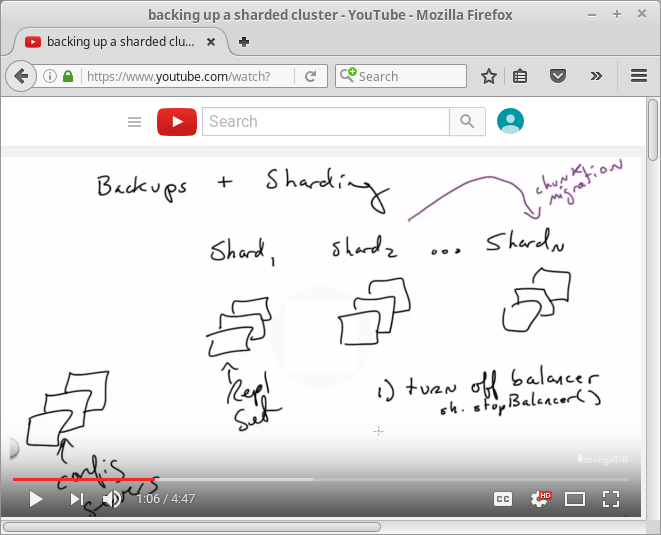 backing up a sharded cluster - YouTube - Mozilla Firefox
backing up a sharded clu...
https://www.youtube.com/watch?
Search
Search
Backups + Sharding
chunk
migration
Shard1 Shard2 ... ShardN
Repl
Set
1) turn off balancer
sh.stopBalancer()
config
servers
mongoDB
1:06 / 4:47
CC
HD